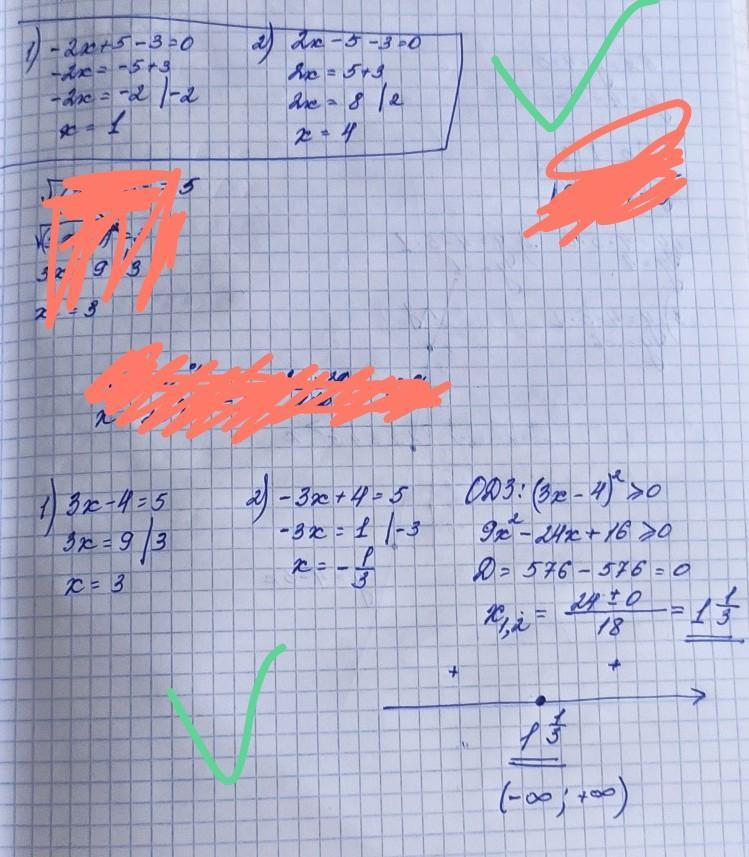 1) -2x+5-3=0
-2x=-5+3
-2x=-2 |-2
x=1
2) 2x-5-3=0
2x=5+3
2x=8 |2
x=4
= 5
3x 9 3
x = 3
x
1) 3x-4=5
3x=9 |3
x=3
2) -3x+4=5
-3x=1 |-3
x=-1/3
ОДЗ: (3x-4)²≥0
9x²-24x+16≥0
D=576-576=0
x₁,₂= 24±0/18 = 1 1/3
+ +
1 1/3
(-∞; +∞)